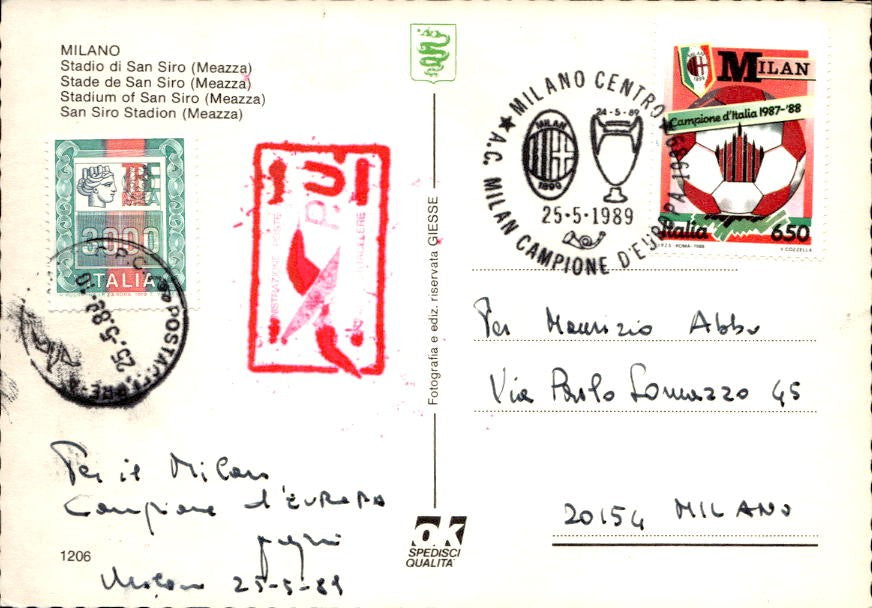 MILANO
Stadio di San Siro (Meazza)
Stade de San Siro (Meazza)
Stadium of San Siro (Meazza)
San Siro Stadion (Meazza)
3000
ITALIA
POSTACELERE
25.5.89
Fotografia e ediz. riservata GIESSE
★ MILANO CENTRO ★
A.C. MILAN CAMPIONE D'EUROPA 1989
24-5-89
MILAN
1899
25-5-1989
MILAN
Campione d'Italia 1987-'88
Italia
650
I.P.Z.S. ROMA - 1988
Per Maurizio Abbo
Via Paolo Lomazzo 45
20154 MILANO
Per il Milan
Campione d'EUROPA
Milano 25-5-89
1206
OK
SPEDISCI
QUALITA'